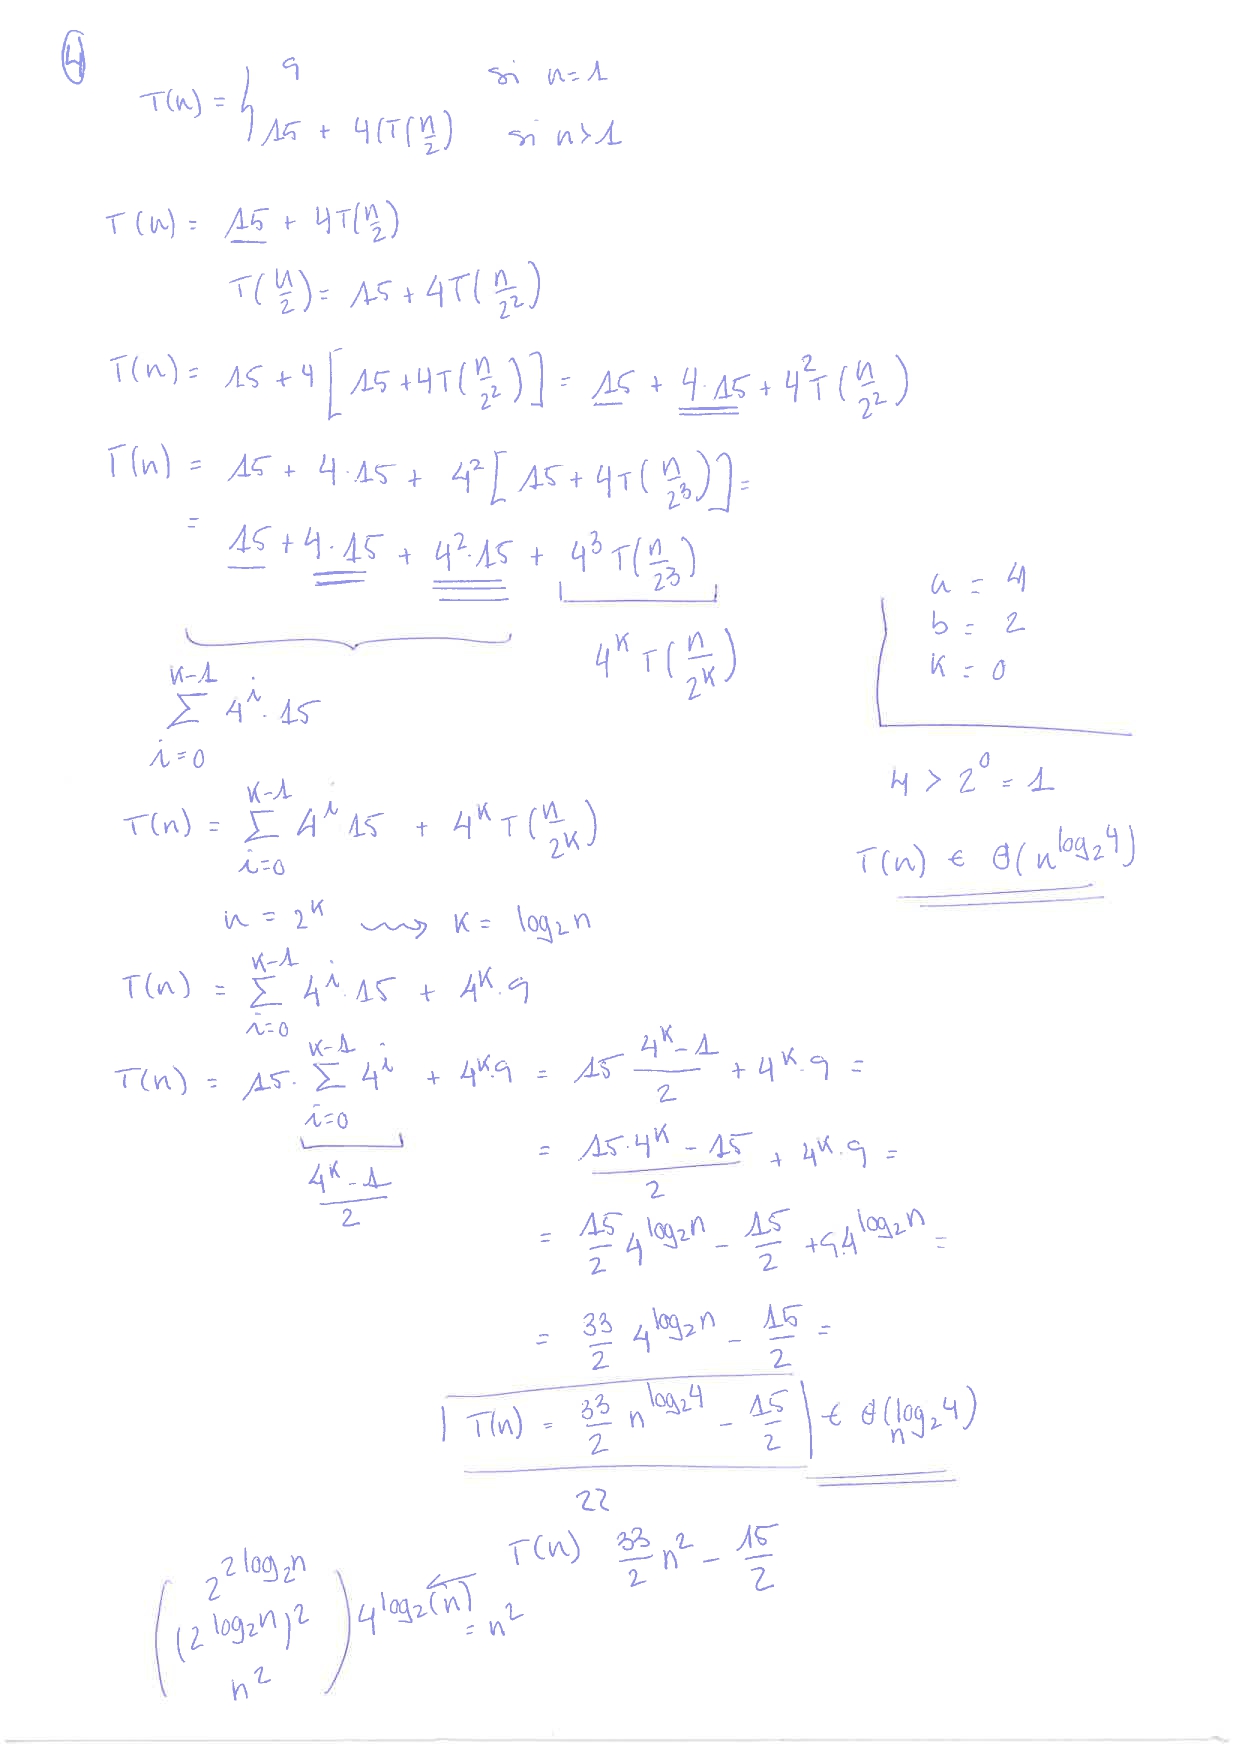 4
T(n) = { 9 si n=1
15 + 4(T(n/2) si n>1
T(n) = 15 + 4T(n/2)
T(n/2) = 15 + 4T(n/2²)
T(n) = 15 + 4[15 + 4T(n/2²)] = 15 + 4·15 + 4²T(n/2²)
T(n) = 15 + 4·15 + 4²[15 + 4T(n/2³)] =
= 15 + 4·15 + 4²·15 + 4³T(n/2³)
4^K T(n/2^K)
∑_{i=0}^{K-1} 4^i·15
a = 4
b = 2
K = 0
4 > 2⁰ = 1
T(n) ∈ θ(n^{log₂4})
T(n) = ∑_{i=0}^{K-1} 4^i 15 + 4^K T(n/2^K)
n = 2^K ⇝ K = log₂n
T(n) = ∑_{i=0}^{K-1} 4^i·15 + 4^K·9
T(n) = 15·∑_{i=0}^{K-1} 4^i + 4^K·9 = 15 (4^K-1)/2 + 4^K·9 =
(4^K-1)/2
= (15·4^K - 15)/2 + 4^K·9 =
= 15/2 4^{log₂n} - 15/2 + 9·4^{log₂n} =
= 33/2 4^{log₂n} - 15/2 =
T(n) = 33/2 n^{log₂4} - 15/2 ∈ θ(n^{log₂4})
22
T(n) 33/2 n² - 15/2
(2^{2log₂n}
(2^{log₂n})²
n²) 4^{log₂(n)} = n²